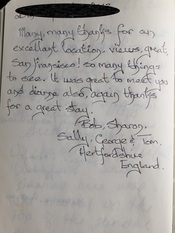 Many, many thanks for an
excellent location. views, great,
San Fransisco! so many things
to see. It was great to meet you
and dianne also, again thanks
for a great stay.
Bob, Sharon.
Sally, George & Tom.
Hertfordshire
England.